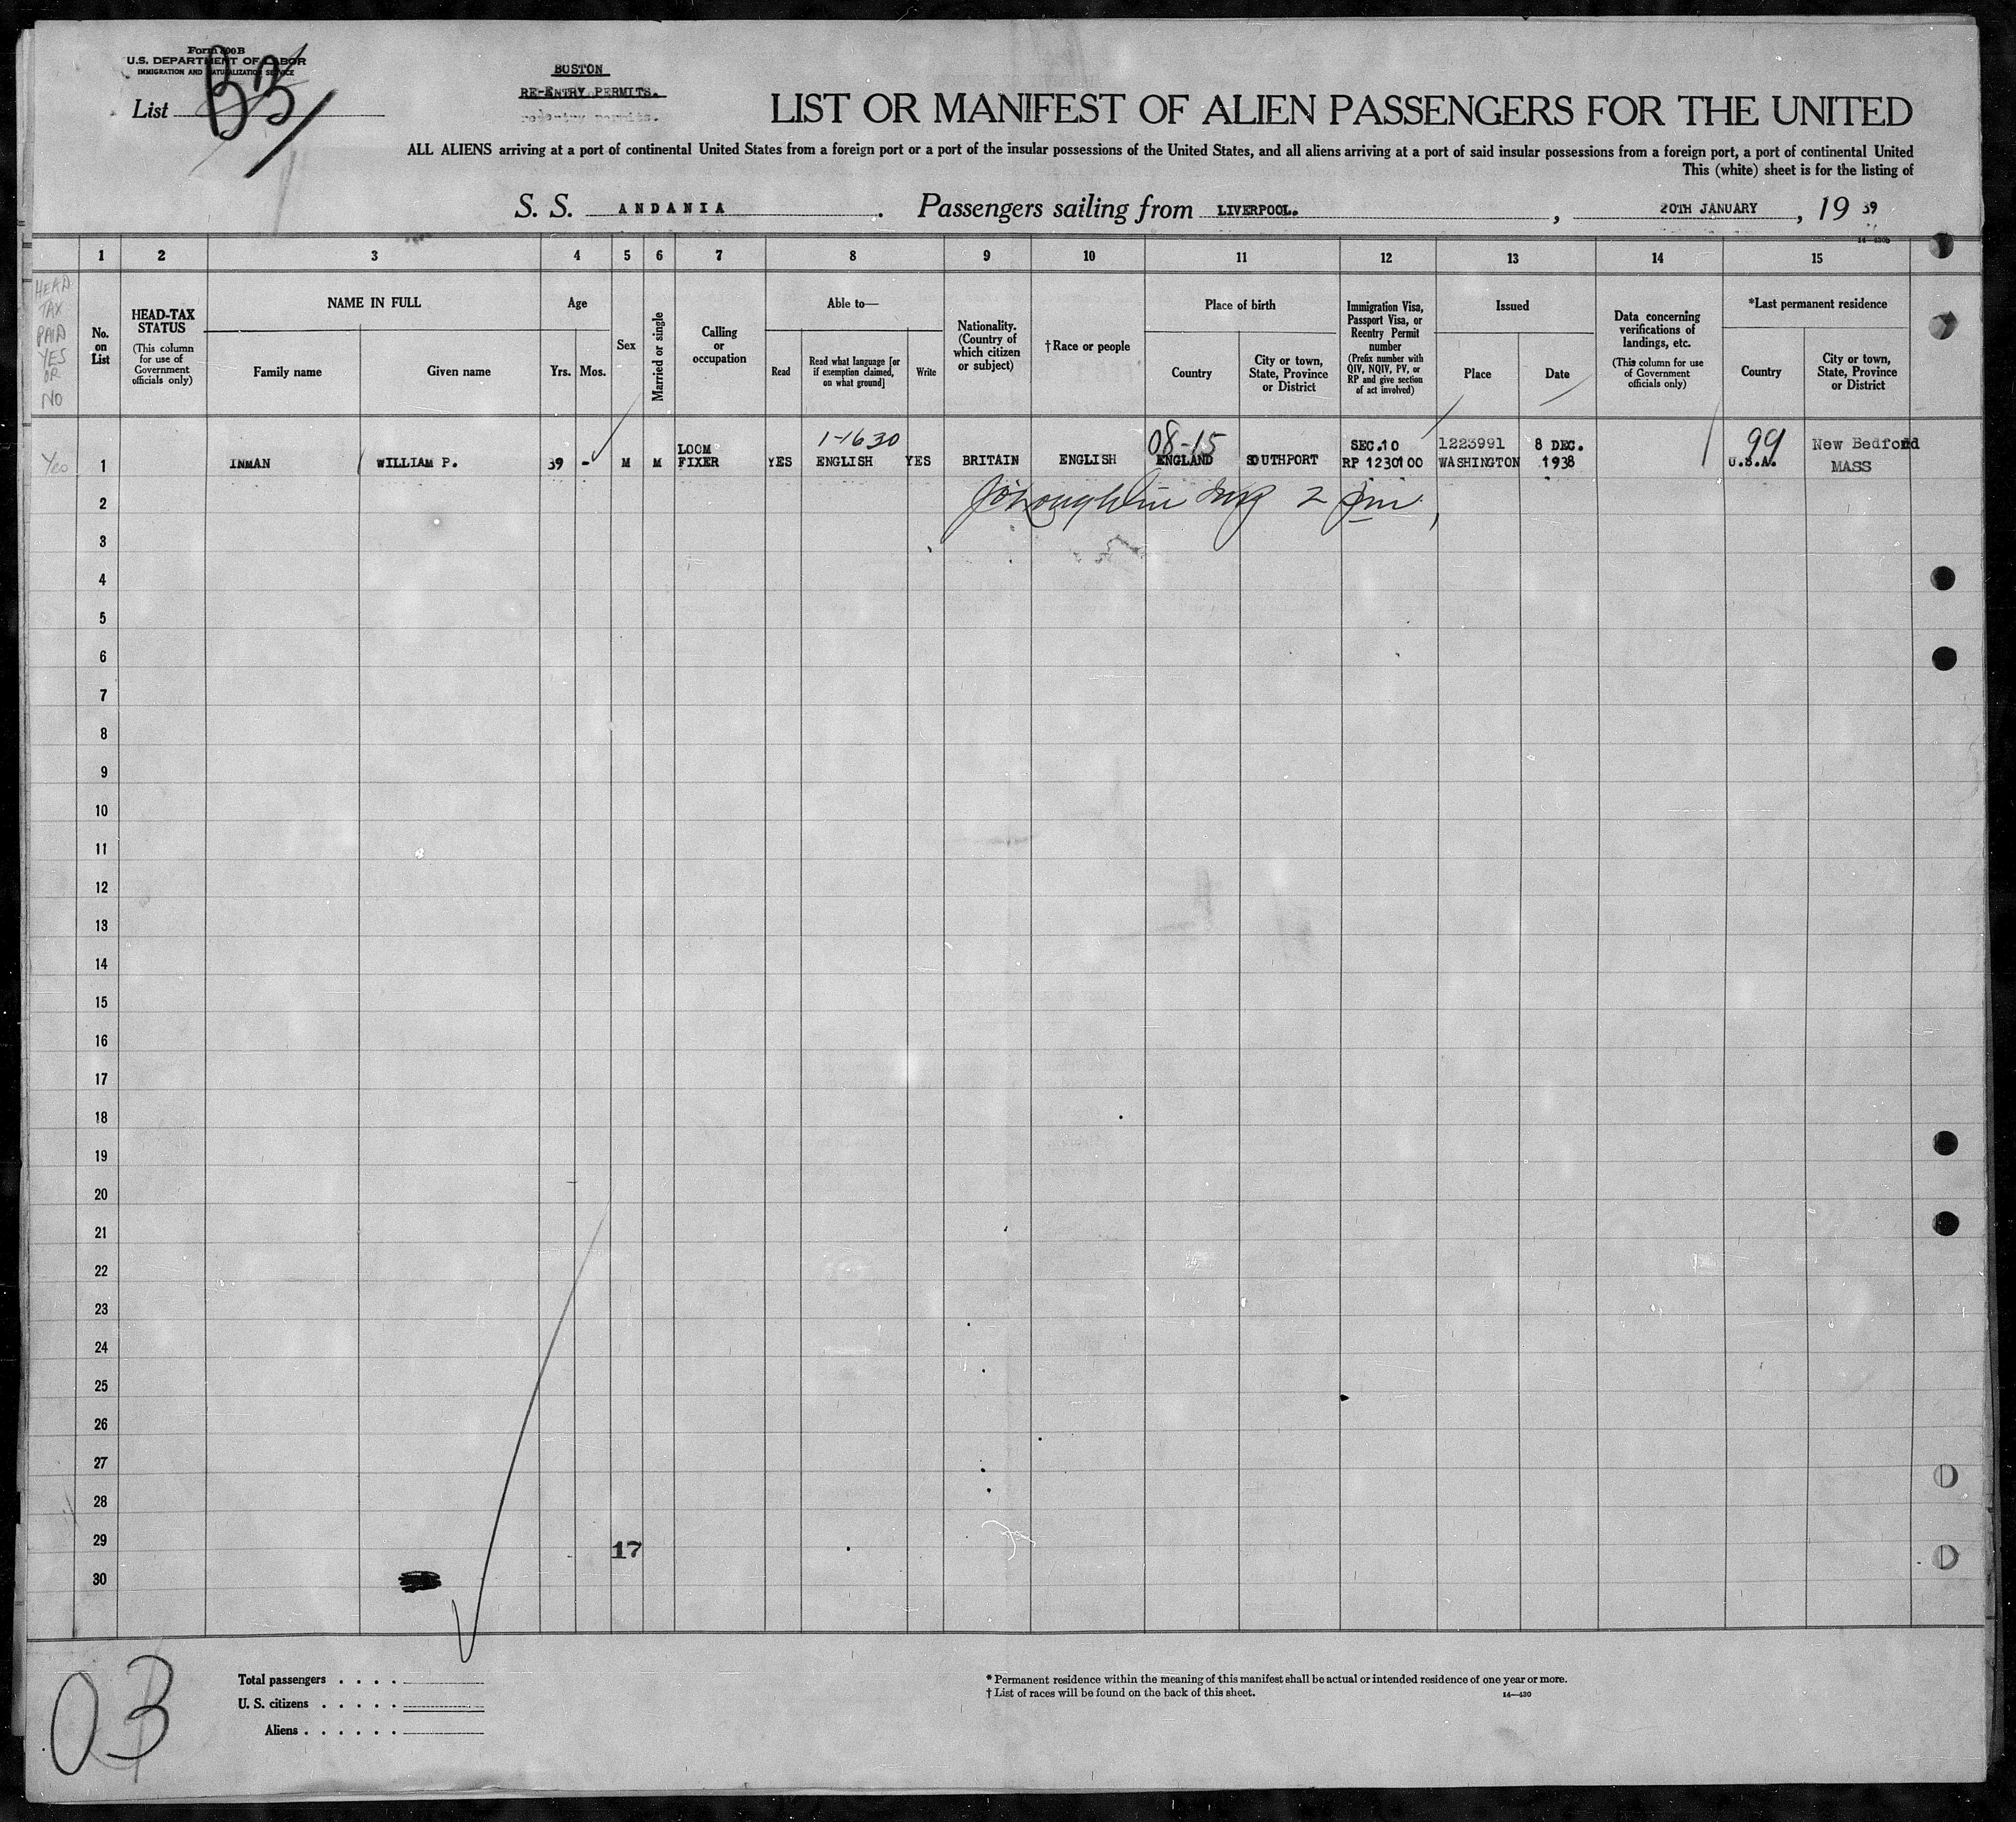 Form 500B
U.S. DEPARTMENT OF LABOR
IMMIGRATION AND NATURALIZATION SERVICE
List B3
BOSTON
RE-ENTRY PERMITS.
reentry permits.
LIST OR MANIFEST OF ALIEN PASSENGERS FOR THE UNITED
ALL ALIENS arriving at a port of continental United States from a foreign port or a port of the insular possessions of the United States, and all aliens arriving at a port of said insular possessions from a foreign port, a port of continental United
This (white) sheet is for the listing of
S. S. ANDANIA. Passengers sailing from LIVERPOOL., 20TH JANUARY, 19 39
14—430b
1 2 3 4 5 6 7 8 9 10 11 12 13 14 15
HEAD TAX PAID YES OR NO
No. on List
HEAD-TAX STATUS
(This column for use of Government officials only)
NAME IN FULL
Family name
Given name
Age
Yrs. Mos.
Sex
Married or single
Calling or occupation
Able to—
Read
Read what language [or if exemption claimed, on what ground]
Write
Nationality. (Country of which citizen or subject)
†Race or people
Place of birth
Country
City or town, State, Province or District
Immigration Visa, Passport Visa, or Reentry Permit number
(Prefix number with QIV, NQIV, PV, or RP and give section of act involved)
Issued
Place
Date
Data concerning verifications of landings, etc.
(This column for use of Government officials only)
*Last permanent residence
Country
City or town, State, Province or District
LOOM 1-1630 08-15 SEC.10 1223991 8 DEC. 99 New Bedford
Yes 1 INMAN WILLIAM P. 39 - M M FIXER YES ENGLISH YES BRITAIN ENGLISH ENGLAND SOUTHPORT RP 1230100 WASHINGTON 1938 U.S.A. MASS
2 2 pm
3
4
5
6
7
8
9
10
11
12
13
14
15
16
17
18
19
20
21
22
23
24
25
26
27
28
29 17
30
03
Total passengers . . . .
U. S. citizens . . . . .
Aliens . . . . . .
* Permanent residence within the meaning of this manifest shall be actual or intended residence of one year or more.
† List of races will be found on the back of this sheet.
14—430